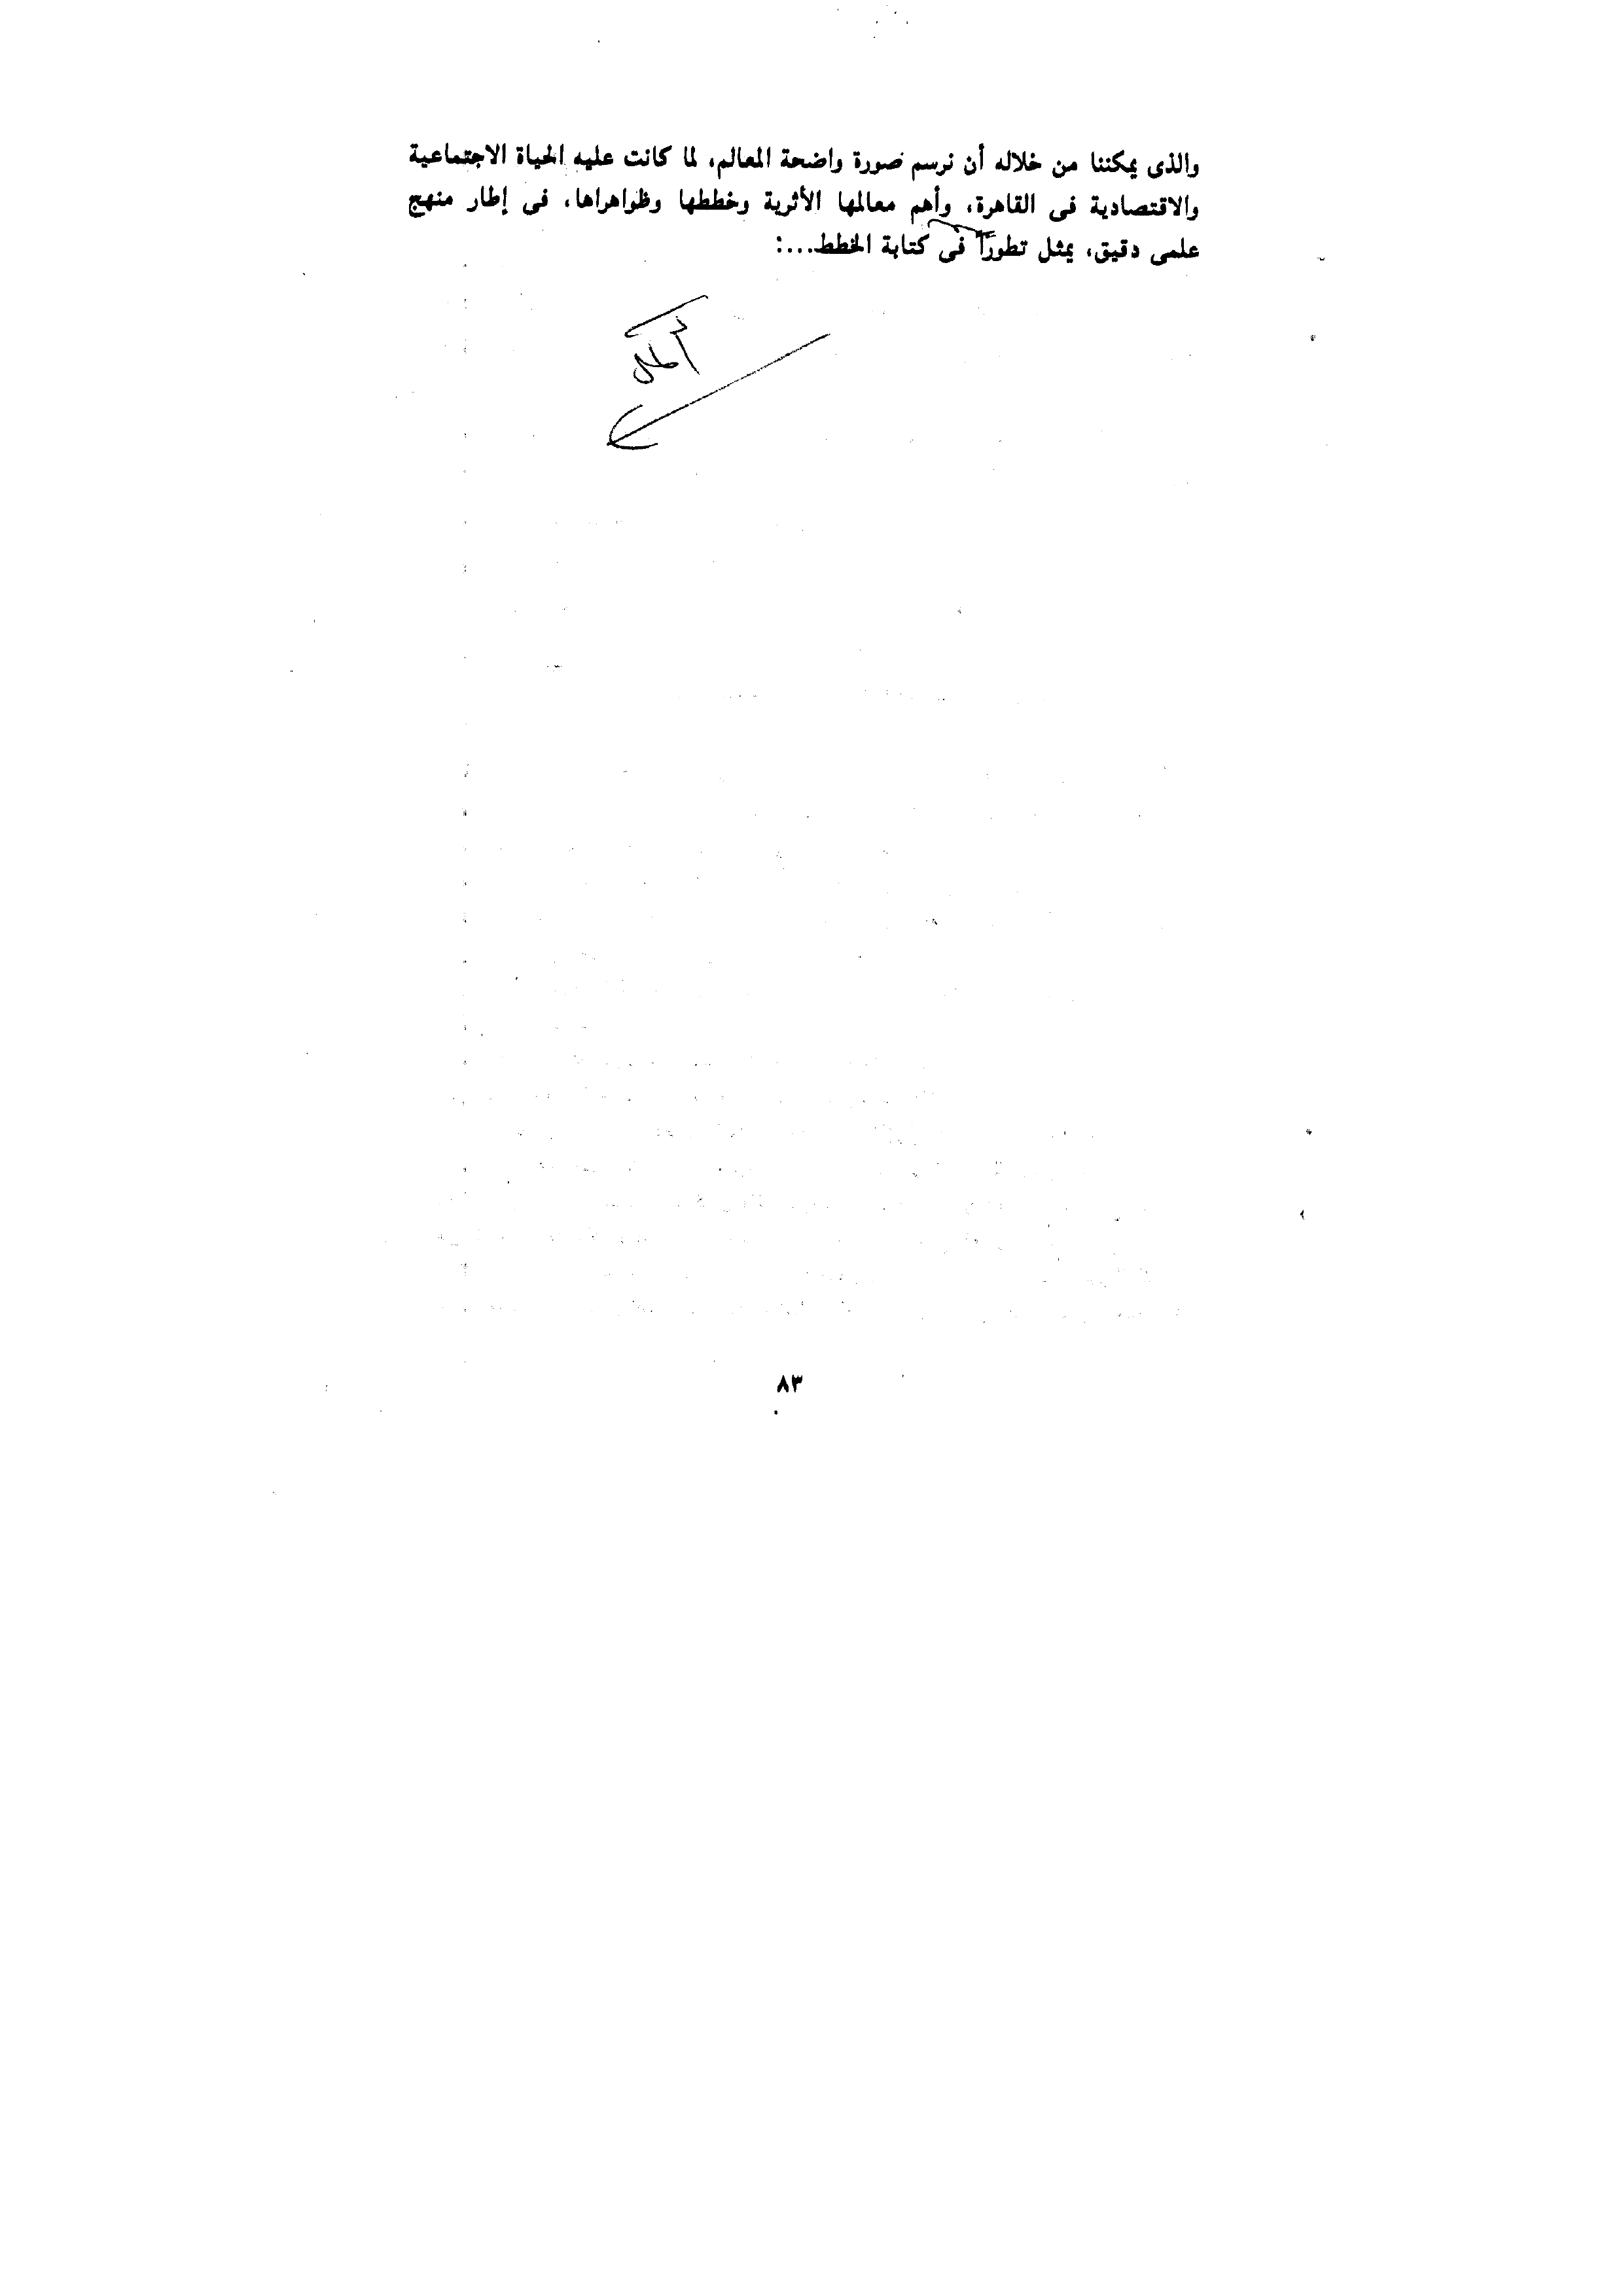 والذى يمكننا من خلاله أن نرسم صورة واضحة المعالم، لما كانت عليه الحياة الاجتماعية
والاقتصادية فى القاهرة، وأهم معالمها الأثرية وخططها وظواهراها، فى إطار منهج
علمى دقيق، يمثل تطورًا فى كتابة الخطط...:
٨٣